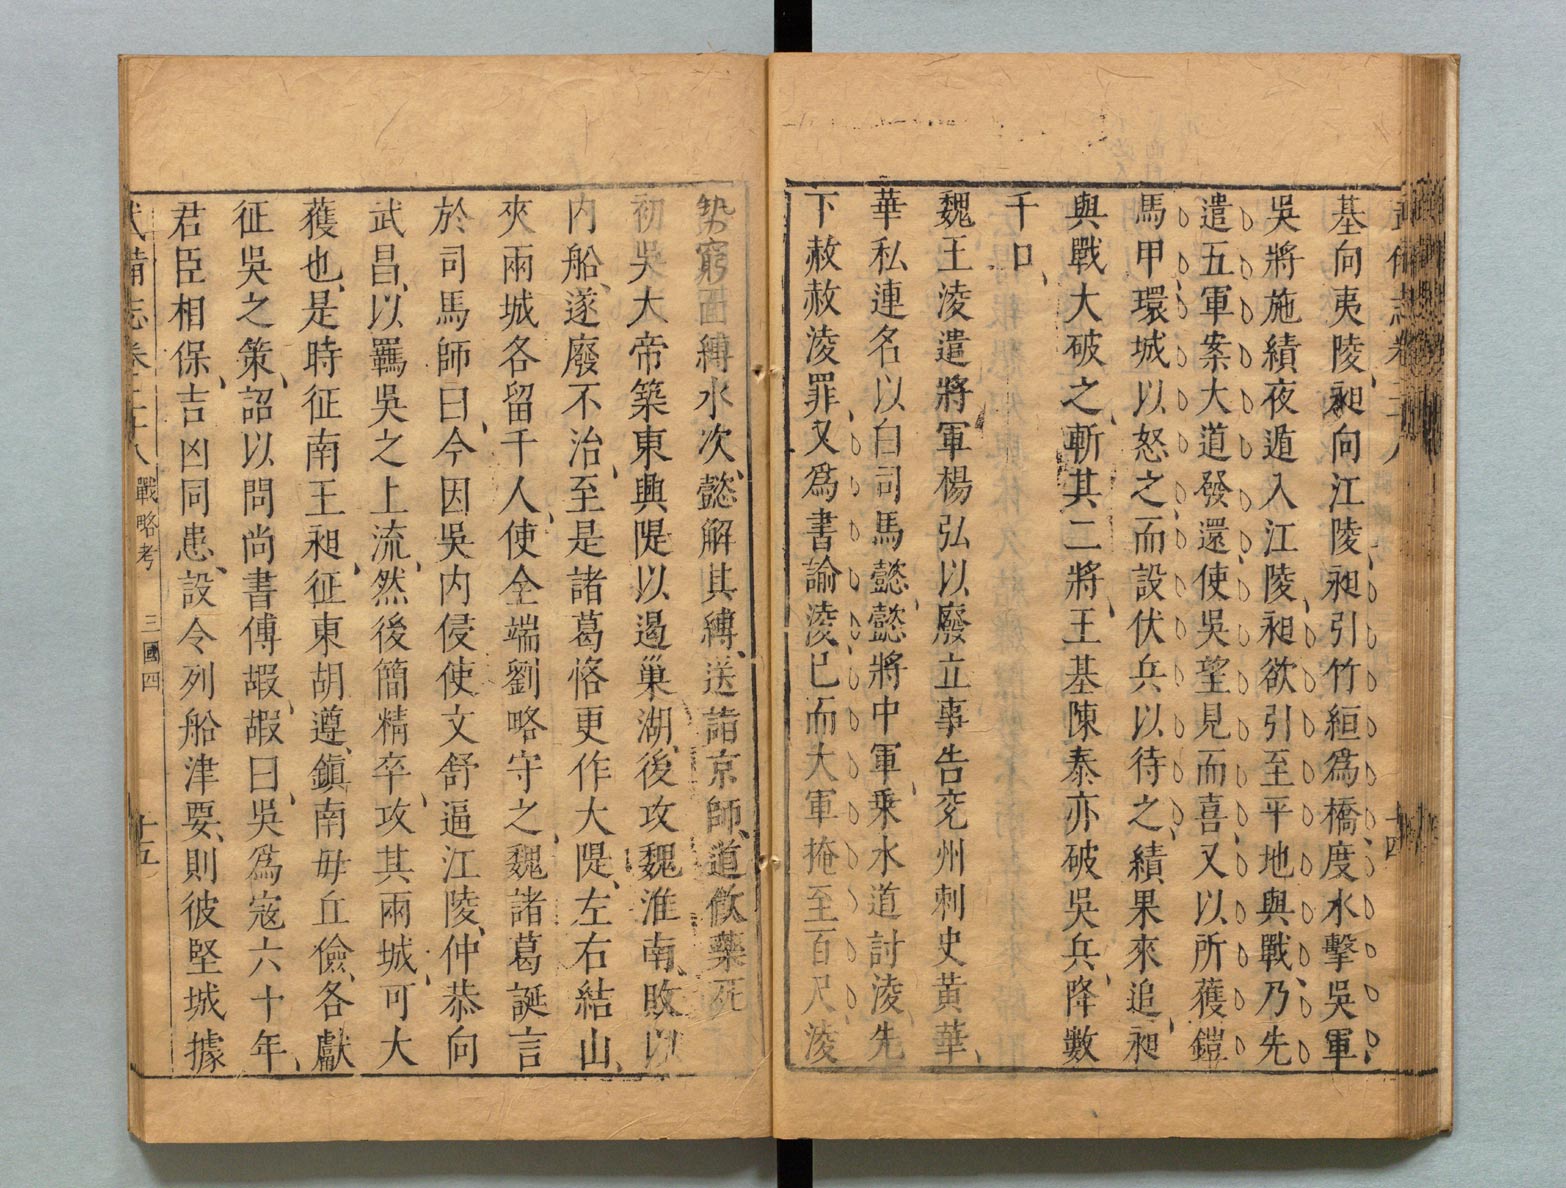 武備志卷二十八
十四
基向夷陵昶向江陵昶引竹絙爲橋度水擊吳軍
吳將施績夜遁入江陵昶欲引至平地與戰乃先
遣五軍案大道發還使吳望見而喜又以所獲鎧
馬甲環城以怒之而設伏兵以待之績果來追昶
與戰大破之斬其二將王基陳泰亦破吳兵降數
千口
魏王淩遣將軍楊弘以廢立事告兗州刺史黃華
華私連名以白司馬懿懿將中軍乗水道討淩先
下赦赦淩罪又爲書諭淩已而大軍掩至百尺淩
勢窮面縛水次懿解其縛送詣京師道飲藥死
初吳大帝築東興隄以遏巢湖後攻魏淮南敗以
内船遂廢不治至是諸葛恪更作大隄左右結山
夾兩城各留千人使全端劉略守之魏諸葛誕言
於司馬師曰今因吳内侵使文舒逼江陵仲恭向
武昌以羈吳之上流然後簡精卒攻其兩城可大
獲也是時征南王昶征東胡遵鎮南毋丘儉各獻
征吳之策詔以問尚書傅嘏嘏曰吳爲寇六十年
君臣相保吉凶同患設令列船津要則彼堅城據
武備志卷二十八 戰略考 三國四 十五